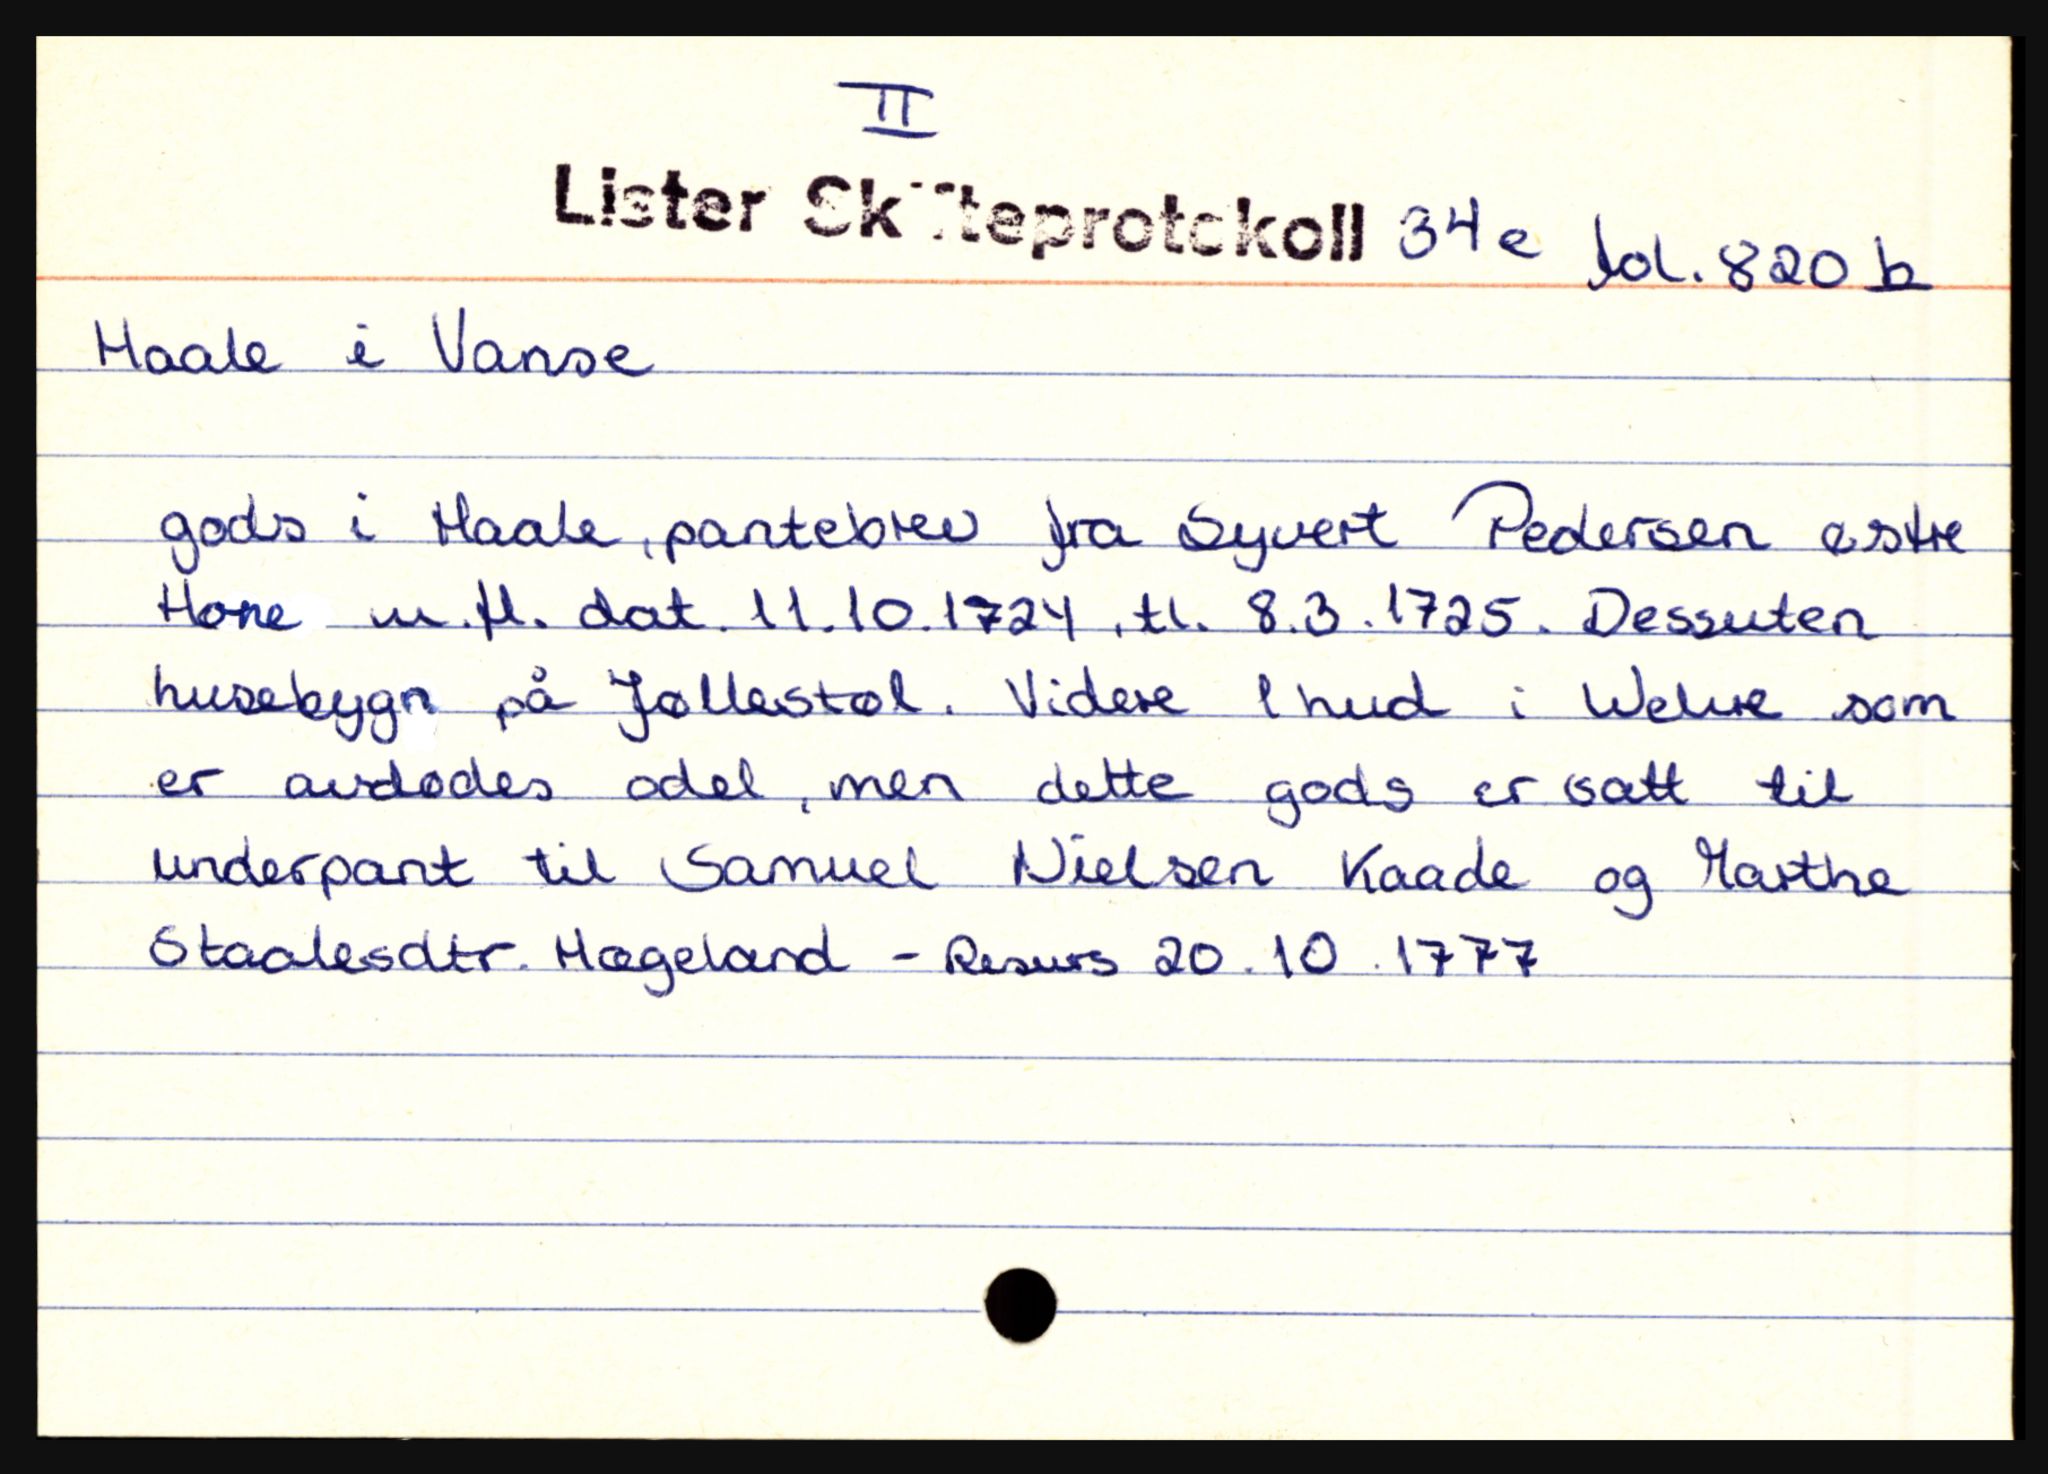 II
Lister Skifteprotokoll 34e fol. 820 b
Haale i Vanse
gods i Haale, pantebrev fra Syvert Pedersen østre
Hone m.fl. dat. 11.10.1724, tl. 8.3.1725. Dessuten
husebygn på Jøllestøl. Videre 1 hud i Welure som
er avdødes odel, men dette gods er satt til
underpant til Samuel Nielsen Kaade og Marthe
Staalesdtr. Hægeland - Resurs 20.10.1777